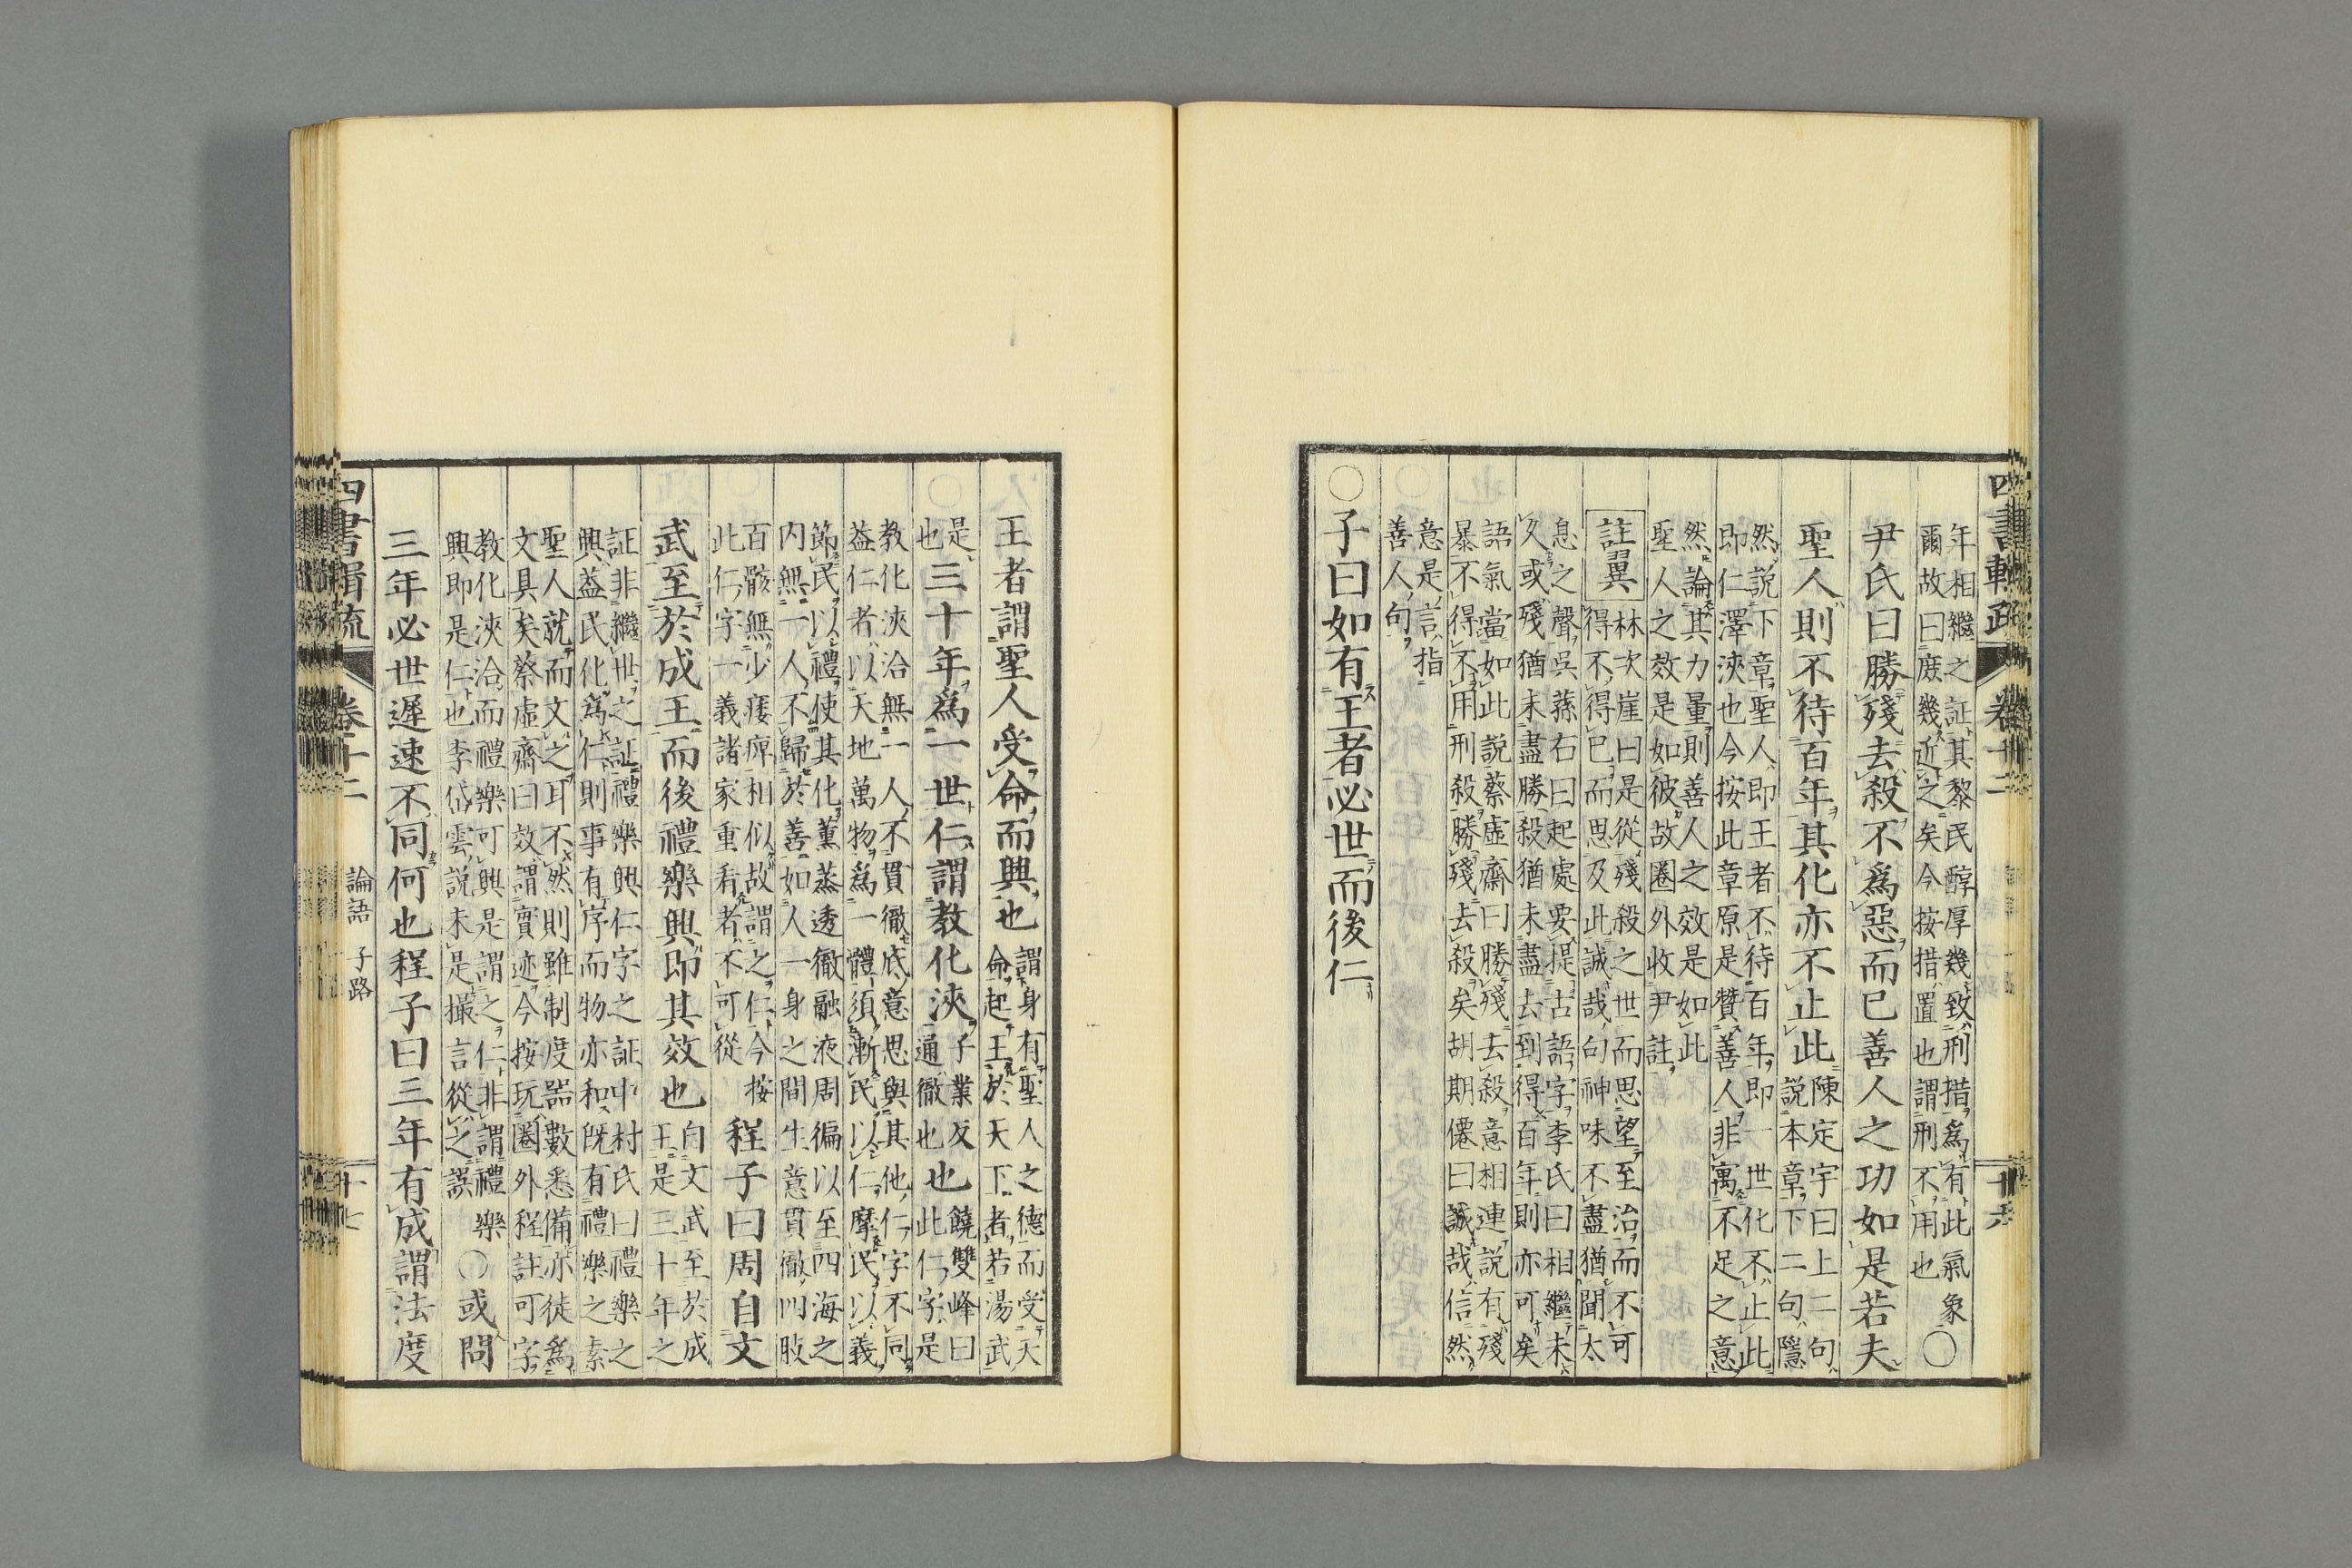 四書輯疏 卷十二 十六
年相繼之証其黎民醇厚幾致刑措爲有此氣象
爾故曰庶幾近之矣今按措置也謂刑不用也
○
尹氏曰勝殘去殺不爲惡而已善人之功如是若夫
聖人則不待百年其化亦不止此
陳定宇曰上二句
説本章下二句隱
然説下章聖人即王者不待百年即一世化不止此
即仁澤浹也今按此章原是贊善人非寓不足之意
然論其力量則善人之效是如此
聖人之效是如彼故圏外收尹註
註翼
林次崖曰是從殘殺之世而思望至治而不可
得不得已而思及此誠哉句神味不盡猶聞太
息之聲呉蓀右曰起處要提古語字李氏曰相繼未
久或殘猶未盡勝殺猶未盡去到得百年則亦可矣
語氣當如此説蔡虛齋曰勝殘去殺意相連説有殘
暴不得不用刑殺勝殘去殺矣胡期僊曰誠哉信然
意是言指
善人句
○子曰如有王者必世而後仁
王者謂聖人受命而興也
謂身有聖人之德而受天
命起王於天下者若湯武
是
也
○
三十年爲一世仁謂教化浹
子業反
通徹也
也
饒雙峰曰
此仁字是
教化浹洽無一人不貫徹底意思與其他仁字不同
葢仁者以天地萬物爲一體須漸民以仁摩民以義
節民以禮使其化薫蒸透徹融液周徧以至四海之
内無一人不歸於善如人一身之間生意貫徹四肢
百骸無少痿痺相似故謂之仁今按
此仁字一義諸家重看者不可從
程子曰周自文
武至於成王而後禮樂興即其效也
自文武至於成
王是三十年之
証非繼世之証禮樂興仁字之証中村氏曰禮樂之
興葢民化爲仁則事有序而物亦和既有禮樂之素
聖人就而文之耳不然則雖制度噐數悉備亦徒爲
文具矣蔡虛齋曰效謂實迹今按玩圏外程註可字
教化浹洽而禮樂可興是謂之仁非謂禮樂
興即是仁也李岱雲説未是撮言從之誤
○或問
三年必世遲速不同何也程子曰三年有成謂法度
四書輯疏 卷十二 論語 子路 十七